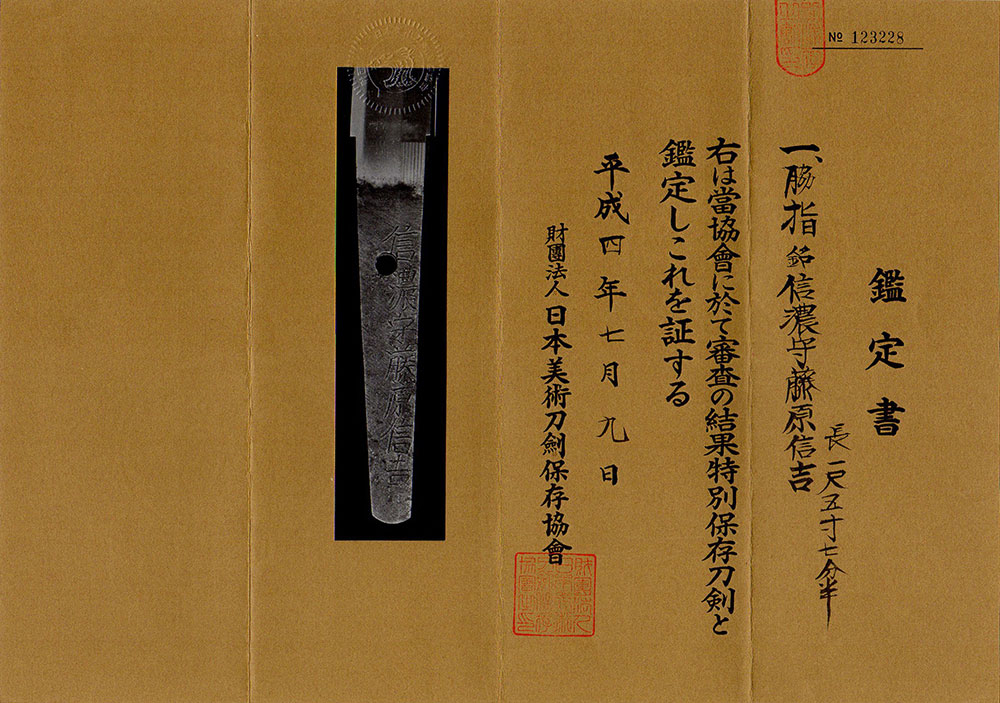 № 123228
鑑定書
一、脇指 銘 信濃守藤原信吉
長一尺五寸七分半
右は當協會に於て審査の結果特別保存刀剣と
鑑定しこれを証する
平成四年七月九日
財團法人日本美術刀劍保存協會
信濃守藤原信吉